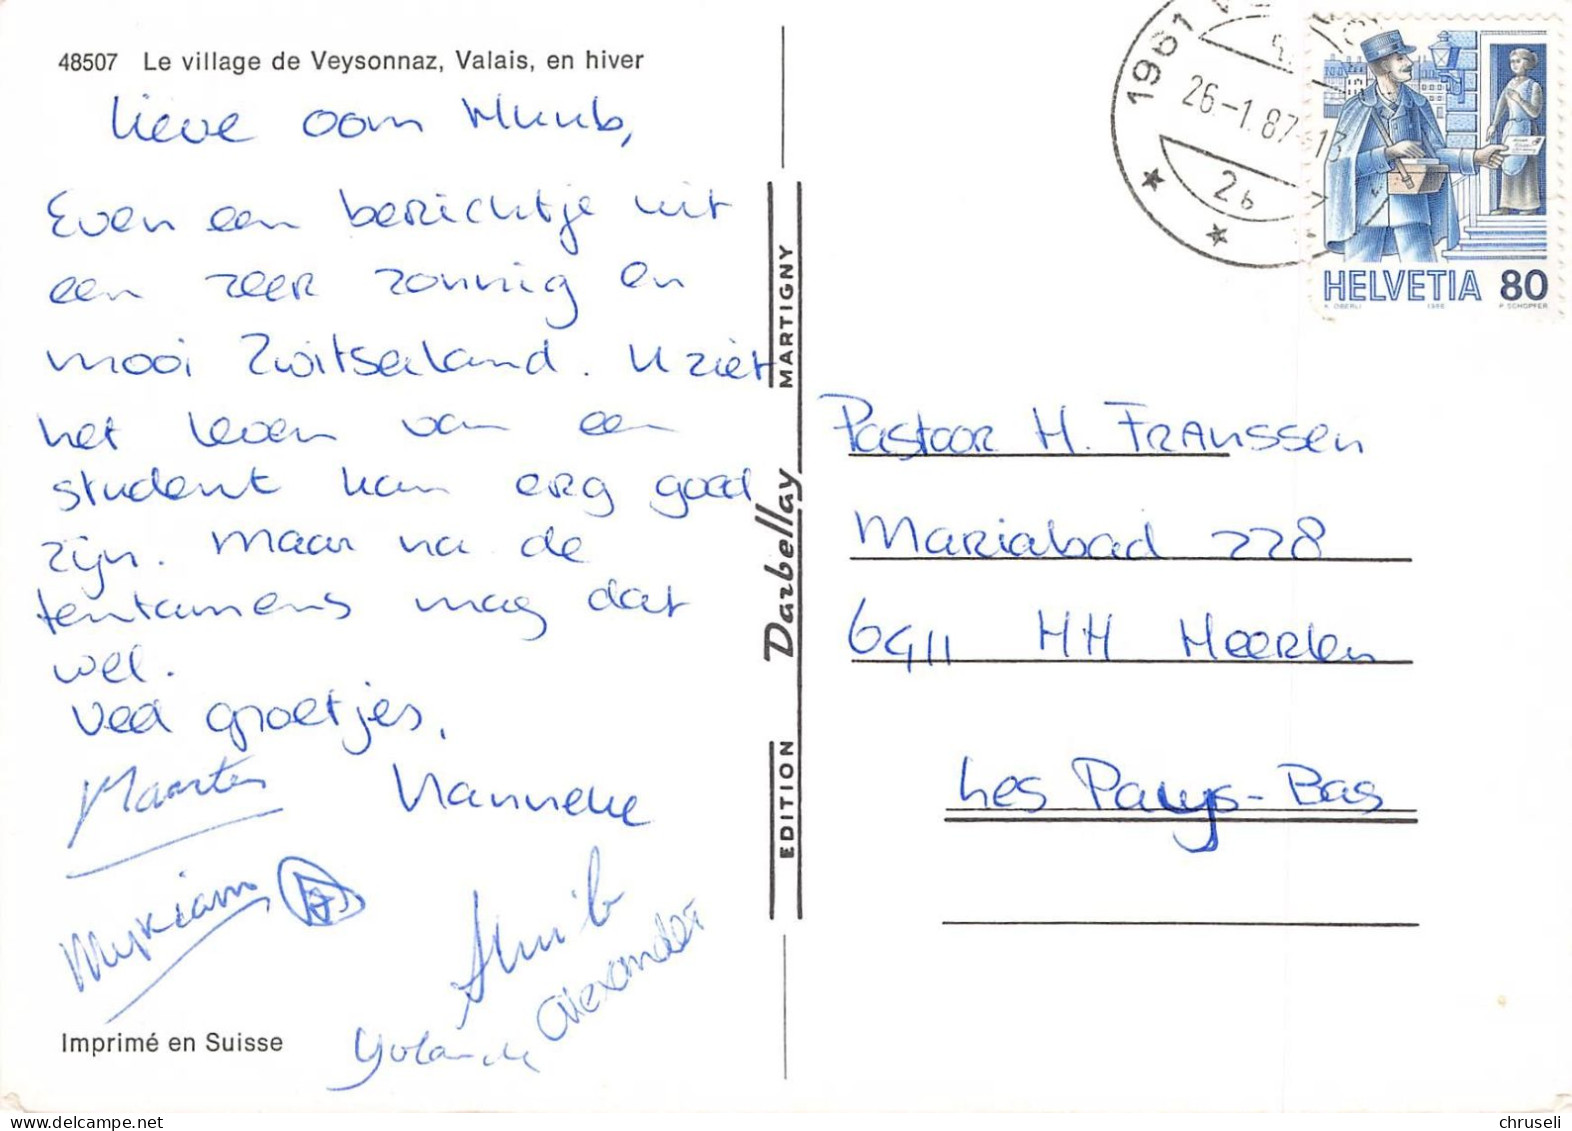 48507 Le village de Veysonnaz, Valais, en hiver
Lieve oom Huub,
Even een berichtje uit
een zeer zonnig en
mooi Zwitserland. U ziet
het leven van een
student kan erg goed
zijn. Maar na de
tentamens mag dat
wel.
Veel groetjes,
Maarten Hanneke
Myriam
Huib
Alexander
Yolande
Imprimé en Suisse
EDITION Darbellay MARTIGNY
1961
26-1.87-13
2b
HELVETIA 80
K. OBERLI 1986 P. SCHOPFER
Pastoor H. Franssen
Mariabad 228
6411 HH Heerlen
Les Pays-Bas
chruseli